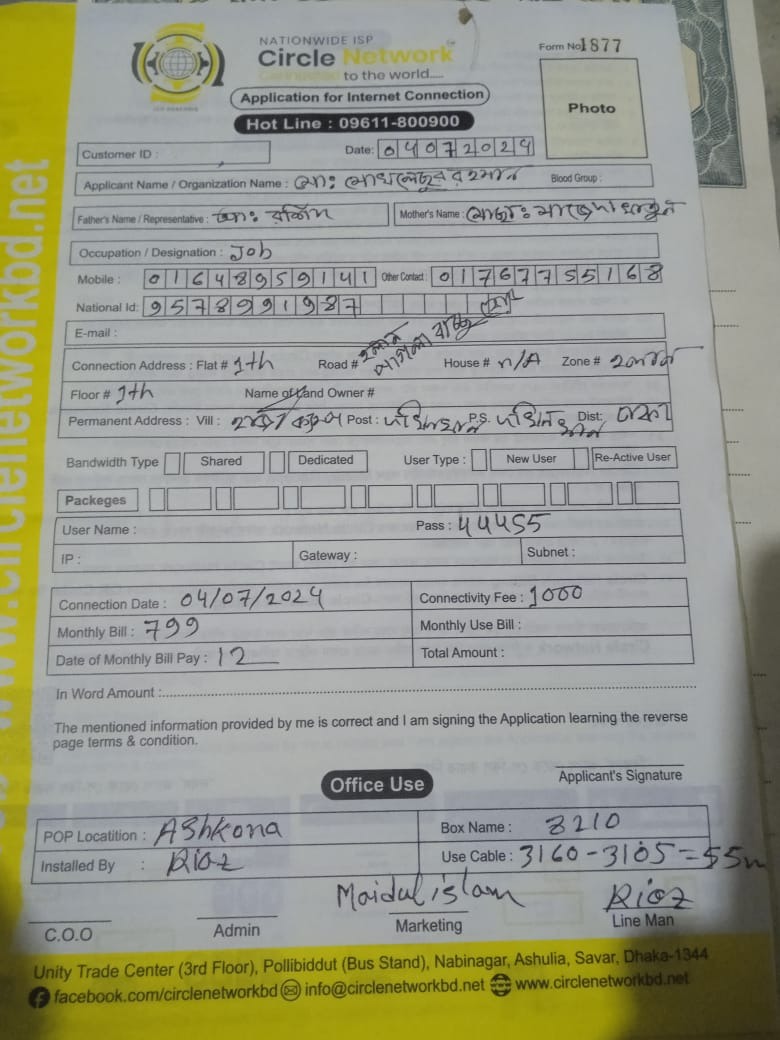 NATIONWIDE ISP
Circle Network
Connected to the world.....
Form No 1877
Application for Internet Connection
Photo
Hot Line : 09611-800900
Customer ID :
Date: 04072024
Applicant Name / Organization Name : মোঃ মোখলেছুর রহমান Blood Group :
Father's Name / Representative : মোঃ Mother's Name : মোছাঃ
Occupation / Designation : Job
Mobile : 01648959141 Other Contact : 01767755168
National Id: 9578991987
E-mail :
Connection Address : Flat # 1th Road # House # n/A Zone #
Floor # 1th Name of Land Owner #
Permanent Address : Vill : Post : P.S. Dist: ঢাকা
Bandwidth Type Shared Dedicated User Type : New User Re-Active User
Packeges
User Name : Pass : 44455
IP : Gateway : Subnet :
Connection Date : 04/07/2024 Connectivity Fee : 1000
Monthly Bill : 799 Monthly Use Bill :
Date of Monthly Bill Pay : 12 Total Amount :
In Word Amount :
The mentioned information provided by me is correct and I am signing the Application learning the reverse
page terms & condition.
Applicant's Signature
Office Use
POP Locatition : AShkona Box Name : 3210
Installed By : Rioz Use Cable : 3160-3105=55m
Maidul islam Rioz
C.O.O Admin Marketing Line Man
Unity Trade Center (3rd Floor), Pollibiddut (Bus Stand), Nabinagar, Ashulia, Savar, Dhaka-1344
facebook.com/circlenetworkbd info@circlenetworkbd.net www.circlenetworkbd.net
www.circlenetworkbd.net